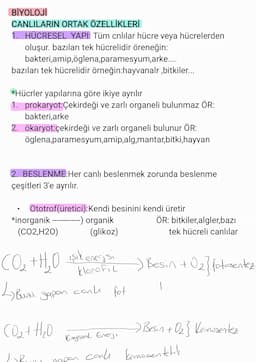 BİYOLOJİ
CANLILARIN ORTAK ÖZELLİKLERİ
1. HÜCRESEL YAPI: Tüm cnlılar hücre veya hücrelerden
oluşur. bazıları tek hücrelidir öreneğin:
bakteri,amip,öglena,paramesyum,arke....
bazıları tek hücrelidir örneğin:hayvanalr ,bitkiler...
*Hücrler yapılarına göre ikiye ayrılır
1. prokaryot:Çekirdeği ve zarlı organeli bulunmaz ÖR:
bakteri,arke
2. ökaryot:çekirdeği ve zarlı organeli bulunur ÖR:
öglena,paramesyum,amip,alg,mantar,bitki,hayvan
2. BESLENME:Her canlı beslenmek zorunda beslenme
çeşitleri 3'e ayrılır.
• Ototrof(üretici):Kendi besinini kendi üretir
*inorganik ———) organik ÖR: bitkiler,algler,bazı
(CO2,H2O) (glikoz) tek hücreli canlılar
CO2 + H2O ışık enerjisi klorofil → Besin + O2} fotosentez
↳ Bunu yapan canlı fot
CO2 + H2O Kimyasal Enerji → Besin + O2} Kemosentez
↳ Bunu yapan canlı